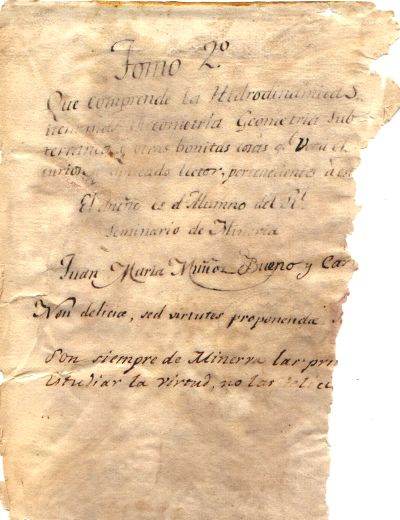 Tomo 2.º
Que comprende la Hidrodinamica S
Geometria Sub
terranea y otras bonitas cosas q.e Verá el
curioso lector, pertenecientes á es
El Dueño es d Alumno del R.l
Seminario de Mineria
Juan Maria Muñoz Bueno y Car
Non deliciæ, sed virtutes proponenda
Son siempre de Minerva las pri
Estudiar la virtud, no las delici